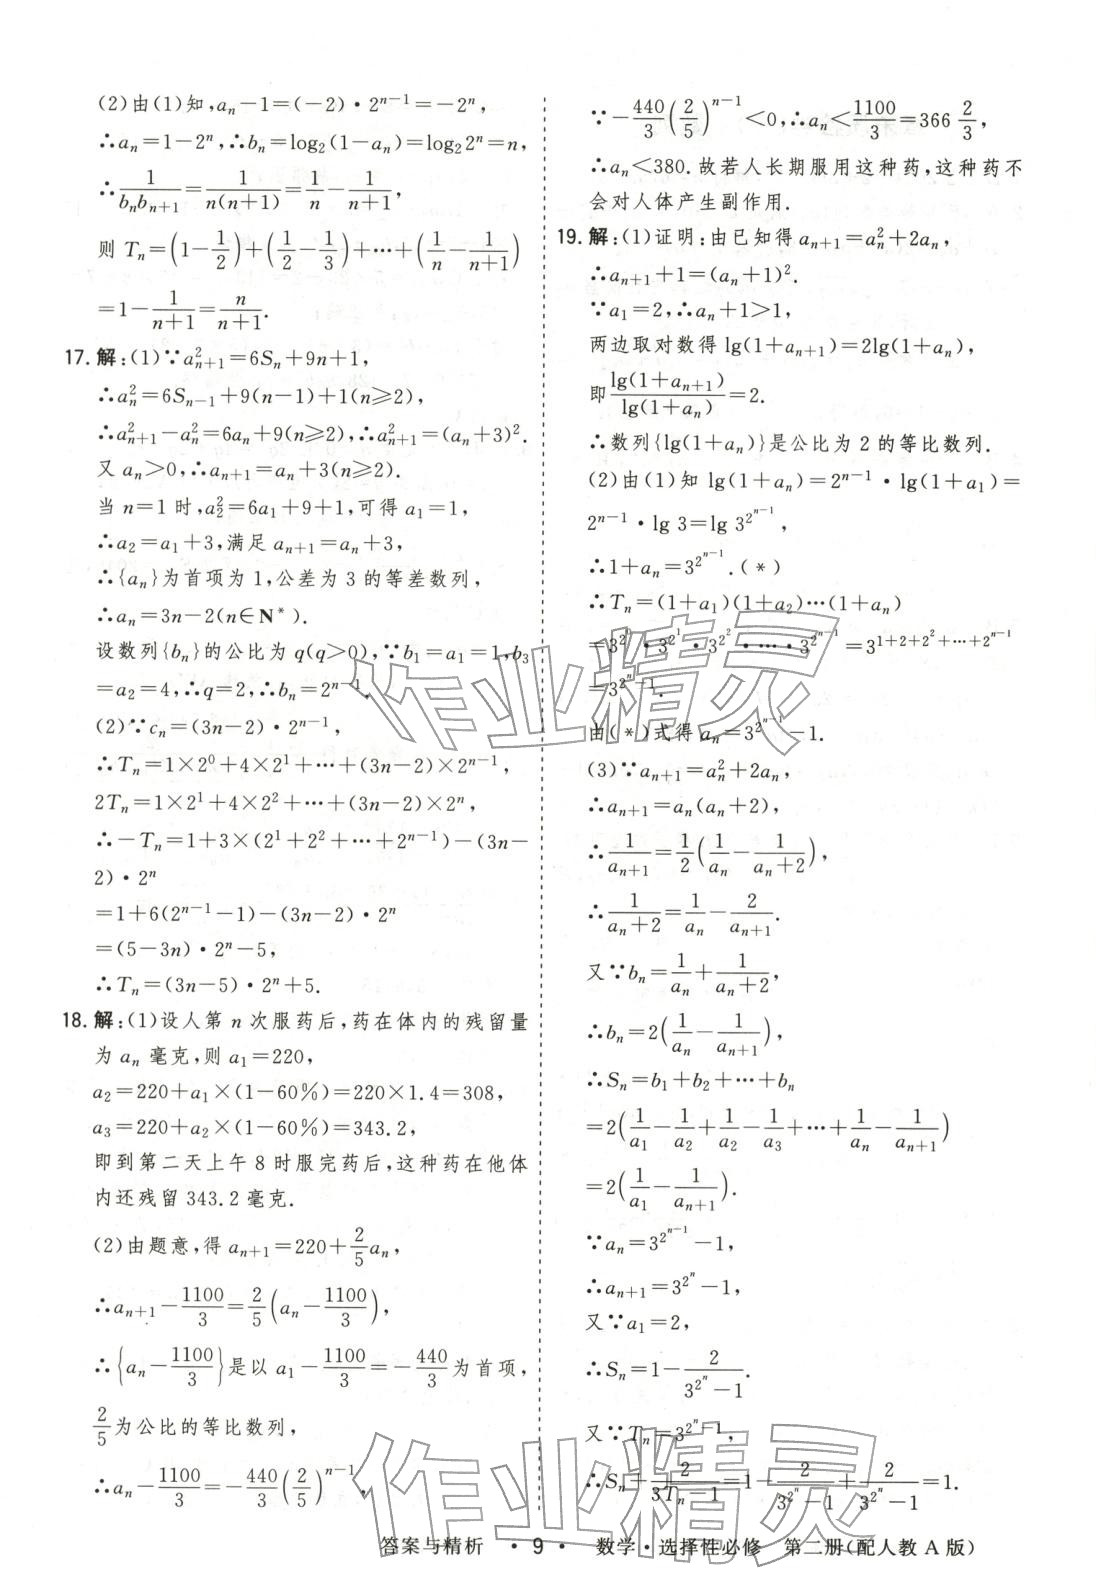 (2)由(1)知,aₙ-1=(-2)·2ⁿ⁻¹=-2ⁿ,
∴aₙ=1-2ⁿ,∴bₙ=log₂(1-aₙ)=log₂2ⁿ=n,
∴1/(bₙbₙ₊₁)=1/(n(n+1))=1/n-1/(n+1),
则 Tₙ=(1-1/2)+(1/2-1/3)+…+(1/n-1/(n+1))
=1-1/(n+1)=n/(n+1).
17. 解:(1)∵a²ₙ₊₁=6Sₙ+9n+1,
∴a²ₙ=6Sₙ₋₁+9(n-1)+1(n≥2),
∴a²ₙ₊₁-a²ₙ=6aₙ+9(n≥2),∴a²ₙ₊₁=(aₙ+3)².
又 aₙ>0,∴aₙ₊₁=aₙ+3(n≥2).
当 n=1 时,a₂²=6a₁+9+1,可得 a₁=1,
∴a₂=a₁+3,满足 aₙ₊₁=aₙ+3,
∴{aₙ}为首项为 1,公差为 3 的等差数列,
∴aₙ=3n-2(n∈N*).
设数列{bₙ}的公比为 q(q>0),∵b₁=a₁=1,b₃
=a₂=4,∴q=2,∴bₙ=2ⁿ⁻¹.
(2)∵cₙ=(3n-2)·2ⁿ⁻¹,
∴Tₙ=1×2⁰+4×2¹+…+(3n-2)×2ⁿ⁻¹,
2Tₙ=1×2¹+4×2²+…+(3n-2)×2ⁿ,
∴-Tₙ=1+3×(2¹+2²+…+2ⁿ⁻¹)-(3n-
2)·2ⁿ
=1+6(2ⁿ⁻¹-1)-(3n-2)·2ⁿ
=(5-3n)·2ⁿ-5,
∴Tₙ=(3n-5)·2ⁿ+5.
18. 解:(1)设人第 n 次服药后,药在体内的残留量
为 aₙ 毫克,则 a₁=220,
a₂=220+a₁×(1-60%)=220×1.4=308,
a₃=220+a₂×(1-60%)=343.2,
即到第二天上午 8 时服完药后,这种药在他体
内还残留 343.2 毫克.
(2)由题意,得 aₙ₊₁=220+2/5aₙ,
∴aₙ₊₁-1100/3=2/5(aₙ-1100/3),
∴{aₙ-1100/3}是以 a₁-1100/3=-440/3 为首项,
2/5为公比的等比数列,
∴aₙ-1100/3=-440/3(2/5)ⁿ⁻¹,
∵-440/3(2/5)ⁿ⁻¹<0,∴aₙ<1100/3=366 2/3,
∴aₙ<380.故若人长期服用这种药,这种药不
会对人体产生副作用.
19. 解:(1)证明:由已知得 aₙ₊₁=a²ₙ+2aₙ,
∴aₙ₊₁+1=(aₙ+1)².
∵a₁=2,∴aₙ+1>1,
两边取对数得 lg(1+aₙ₊₁)=2lg(1+aₙ),
即lg(1+aₙ₊₁)/lg(1+aₙ)=2.
∴数列{lg(1+aₙ)}是公比为 2 的等比数列.
(2)由(1)知 lg(1+aₙ)=2ⁿ⁻¹·lg(1+a₁)=
2ⁿ⁻¹·lg 3=lg 3^(2^(n-1)),
∴1+aₙ=3^(2^(n-1)).(*)
∴Tₙ=(1+a₁)(1+a₂)…(1+aₙ)
=3^(2^0)·3^(2^1)·3^(2^2)·…·3^(2^(n-1))=3^(1+2+2²+…+2^(n-1))
=3^(2^n-1).
由(*)式得 aₙ=3^(2^(n-1))-1.
(3)∵aₙ₊₁=a²ₙ+2aₙ,
∴aₙ₊₁=aₙ(aₙ+2),
∴1/aₙ₊₁=1/2(1/aₙ-1/(aₙ+2)),
∴1/(aₙ+2)=1/aₙ-2/aₙ₊₁.
又∵bₙ=1/aₙ+1/(aₙ+2),
∴bₙ=2(1/aₙ-1/aₙ₊₁),
∴Sₙ=b₁+b₂+…+bₙ
=2(1/a₁-1/a₂+1/a₂-1/a₃+…+1/aₙ-1/aₙ₊₁)
=2(1/a₁-1/aₙ₊₁).
∵aₙ=3^(2^(n-1))-1,
∴aₙ₊₁=3^(2^n)-1,
又∵a₁=2,
∴Sₙ=1-2/(3^(2^n)-1).
又∵Tₙ=3^(2^n-1),
∴Sₙ+2/(3Tₙ-1)=1-2/(3^(2^n)-1)+2/(3^(2^n)-1)=1.
作业精灵
作业精灵
答案与精析 · 9 · 数学·选择性必修 第二册(配人教 A 版)